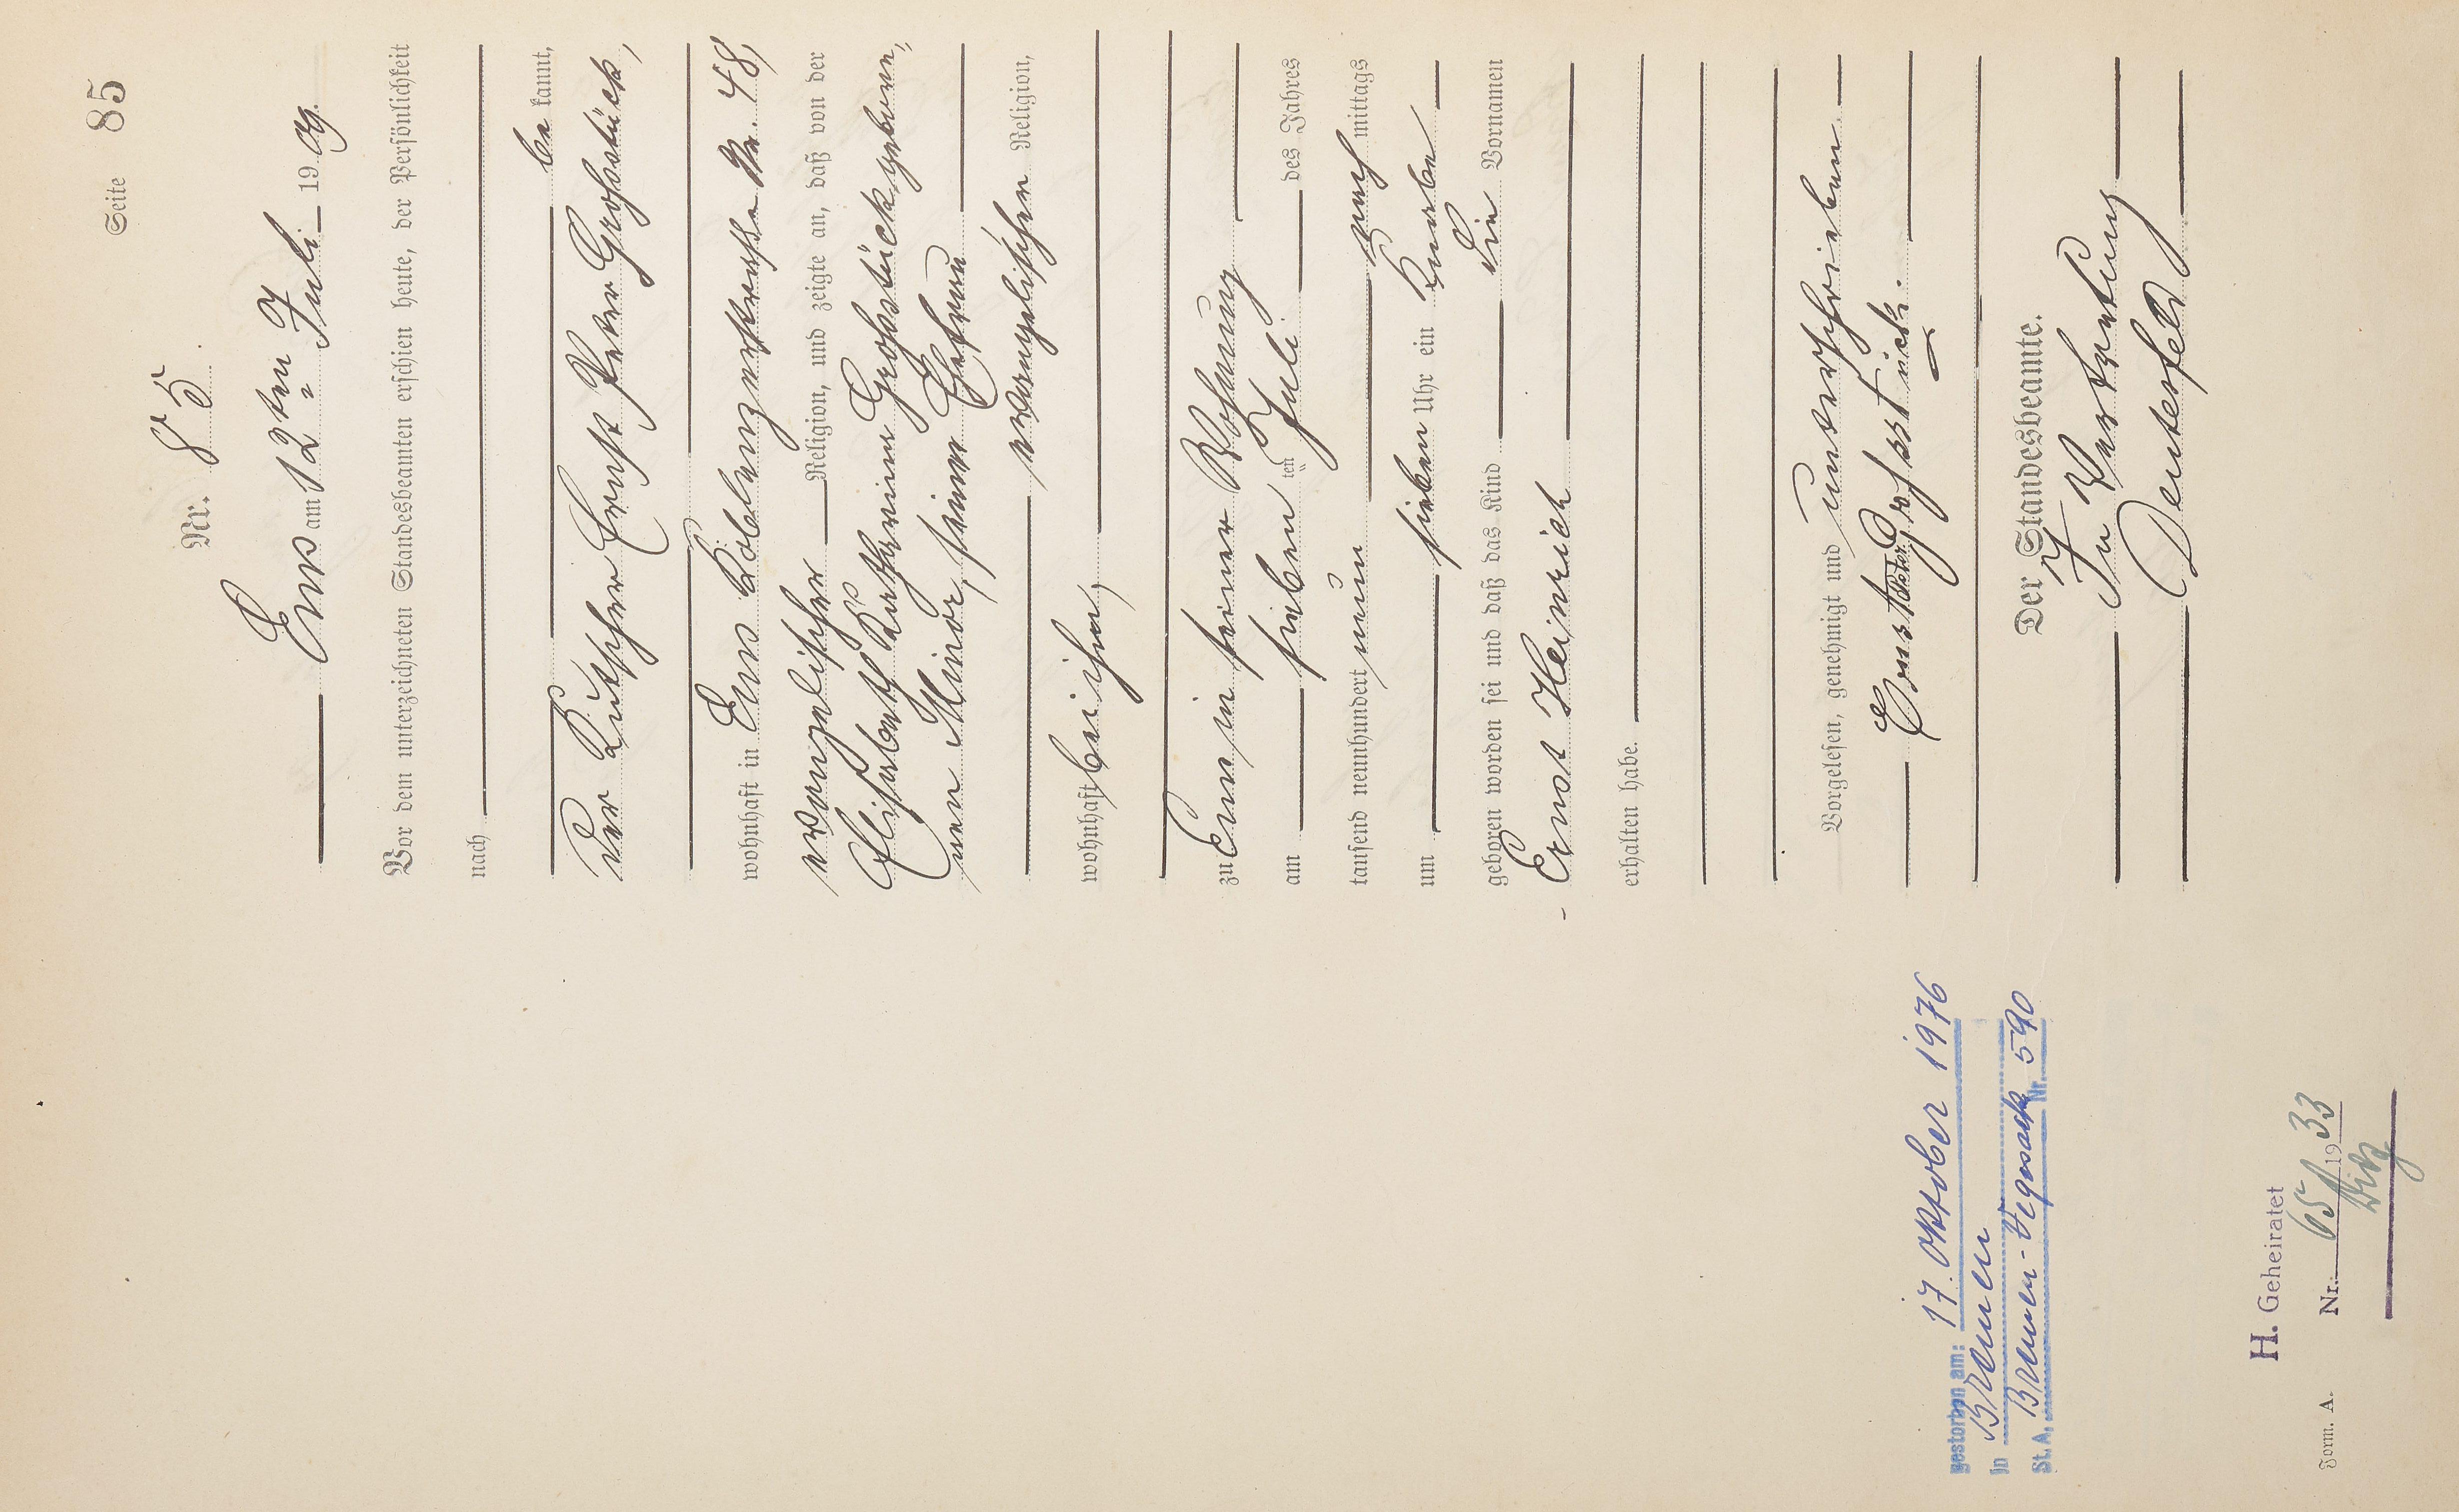 Seite 85
Nr. 85.
Ems am 12ten Juli 1909.
Vor dem unterzeichneten Standesbeamten erschien heute, der Persönlichkeit
nach
be kannt,
der Kutscher Ernst Peter Großstück,
wohnhaft in Ems Koblenzerstraße Nr. 48,
evangelischer Religion, und zeigte an, daß von der
Elisabeth Katharina Großstück gebore-
nen Minor, seiner Ehefrau
evangelischen Religion,
wohnhaft bei ihm,
zu Ems in seiner Wohnung
am sieben ten Juli des Jahres
tausend neunhundert neun nach mittags
um sieben Uhr ein Knabe
geboren worden sei und daß das Kind die Vornamen
Ernst Heinrich
erhalten habe.
Vorgelesen, genehmigt und unterschrieben
Ernst Peter Großstück.
Der Standesbeamte.
In Vertretung
gestorben am: 17. Oktober 1976
in Bremen
St. A. Bremen-Vegesack Nr. 590
H. Geheiratet
Nr. 65 1933
Diez
Form. A.